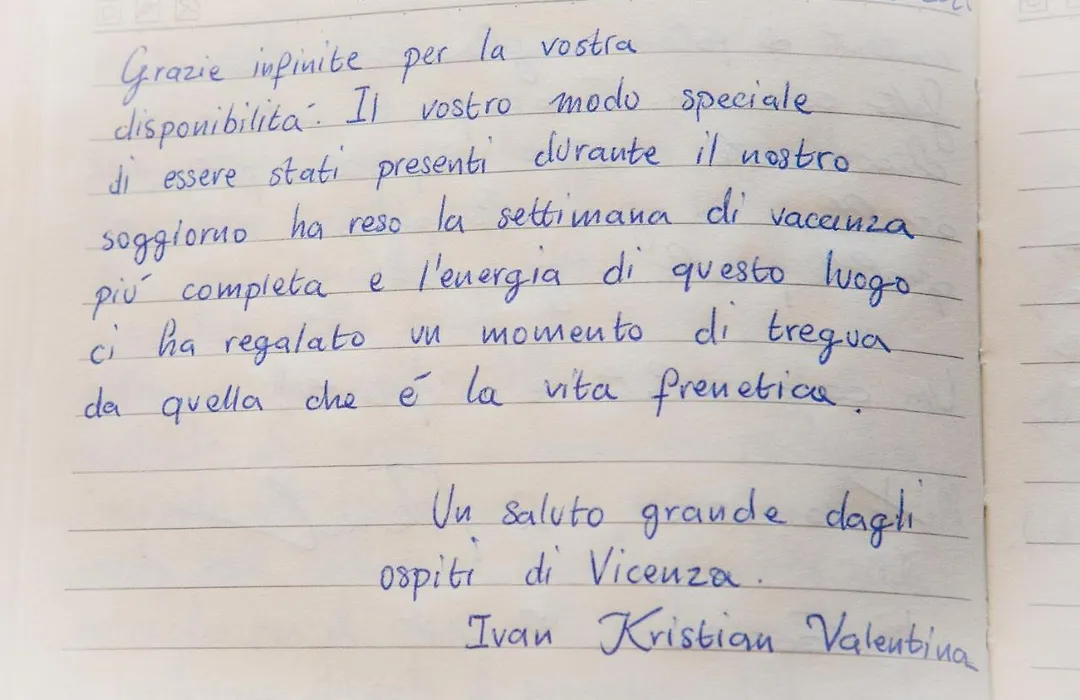 Grazie infinite per la vostra
disponibilitá. Il vostro modo speciale
di essere stati presenti durante il nostro
soggiorno ha reso la settimana di vacanza
piú completa e l'energia di questo luogo
ci ha regalato un momento di tregua
da quella che é la vita frenetica.
Un saluto grande dagli
ospiti di Vicenza.
Ivan Kristian Valentina